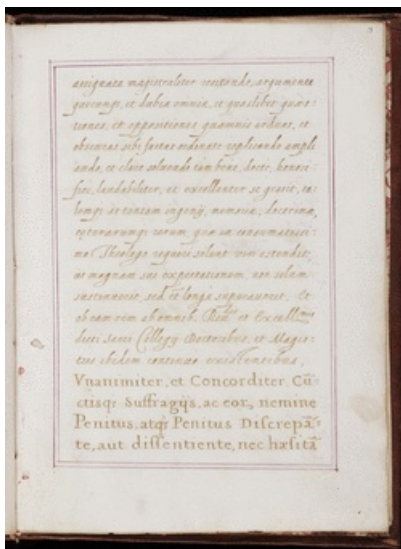 assignata magistraliter recitando, argumenta
quæcunqs, et dubia omnia, et quaslibet quæs-
tiones, et oppositiones quamuis arduas, et
obscuras sibi factas ordinate replicando, ampli
ando, et clare soluendo tam bene, docte, honori-
fice, laudabiliter, et excellenter se gessit, ta-
lemqs ac tantam ingenij, memoriæ, doctrinæ,
cæterarumqs rerum, quæ in consumatissi-
mo Theologo requiri solent vim ostendit,
ut magnam sui expectationem, non solum
sustinuerit, sed et longe superauerit, Et
ob eam rem ab omnib. Reu.dis et Excell.mis
dicti sacri Collegij Doctoribus, et Magis-
tris ibidem existentibus,
Vnanimiter, et Concorditer Cū
ctisqs Suffragijs, ac eor., nemine
Penitus, atqs Penitus Discrepā-
te, aut dissentiente, nec hæsitā